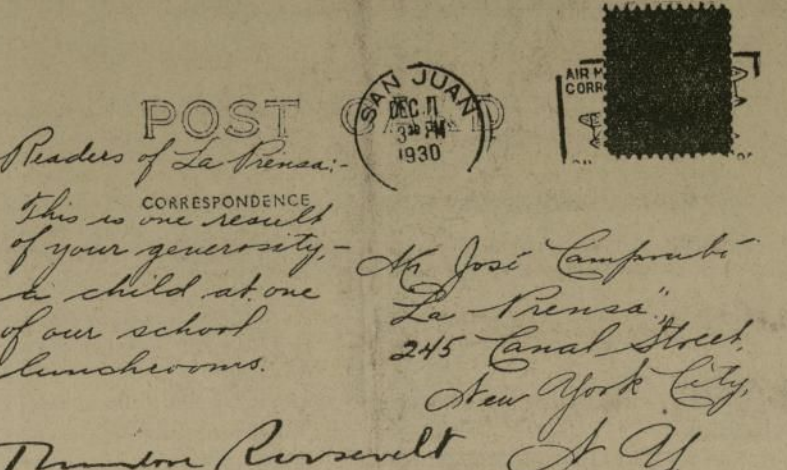 POST CARD
SAN JUAN
DEC 11
3 30 PM
1930
AIR M
CORR
Readers of La Prensa:-
CORRESPONDENCE
This is one result
of your generosity,-
a child at one
of our school
lunchrooms.
Theodore Roosevelt
Mr José Camprubí
"La Prensa",
245 Canal Street,
New York City,
N Y